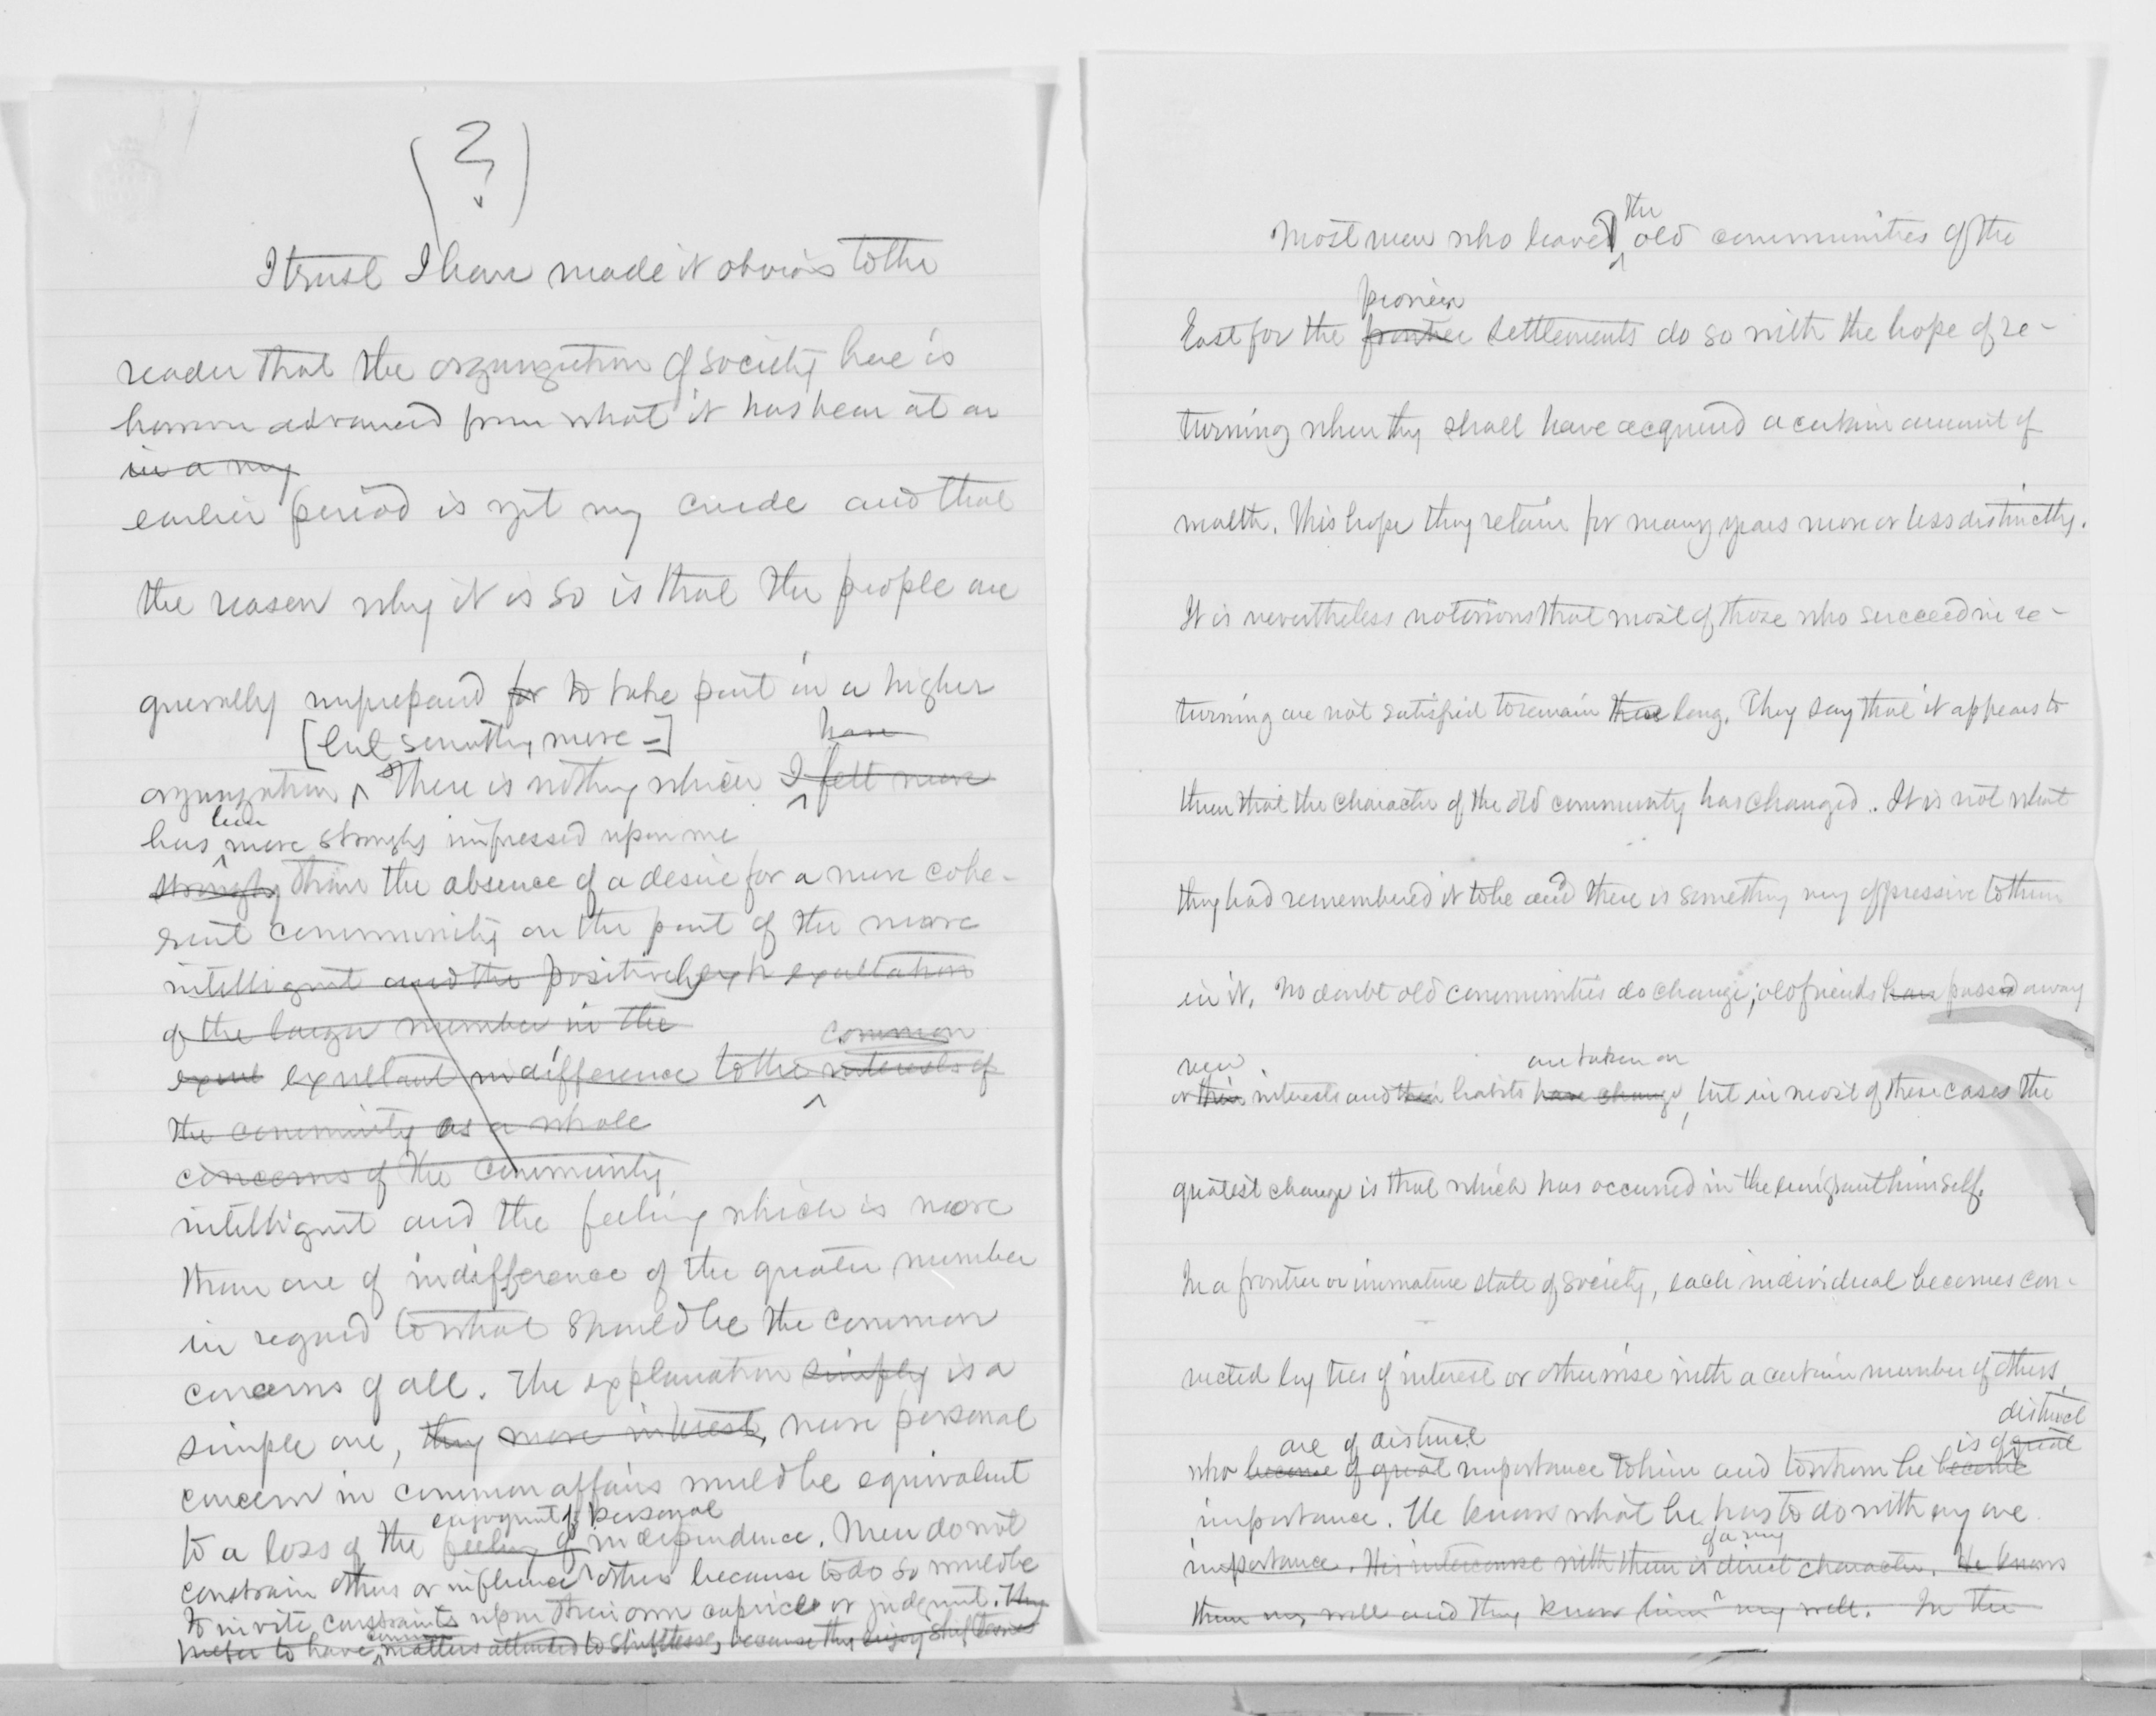 (?)
I trust I have made it obvious to the
reader that the organization of society here is
however advanced from what it has been at an
in a very
earlier period is yet very crude and that
the reason why it is so is that the people are
generally unprepared for to take part in a higher
[but something more —] have
organization. There is nothing which I felt more
has been more strongly impressed upon me
strongly than the absence of a desire for a more cohe-
rent community on the part of the more
intelligent and the positively exultation
of the larger number in the
common
exult exultant indifference to the interests of
the community as a whole
concerns of the community
intelligent and the feeling which is more
than one of indifference of the greater number
in regard to what should be the common
concerns of all. The explanation simply is a
simple one, they more interest, more personal
concern in common affairs would be equivalent
enjoyment of personal
to a loss of the feeling of independence. Men do not
constrain others or influence others because to do so would be
to invite constraints upon their own caprice or judgment. They
common
prefer to have matters attended to shiftlessly, because they enjoy shiftlessness
the
Most men who leave old communities of the
pioneer
East for the frontier settlements do so with the hope of re-
turning when they shall have acquired a certain amount of
wealth. This hope they retain for many years more or less distinctly.
It is nevertheless notorious that most of those who succeed in re-
turning are not satisfied to remain there long. They say that it appears to
them that the character of the old community has changed. It is not what
they had remembered it to be and there is something very oppressive to them
in it. No doubt old communities do change; old friends have passed away
new are taken on
or their interests and their habits have change, but in most of these cases the
greatest change is that which has occurred in the emigrant himself.
In a frontier or immature state of society, each individual becomes con-
nected by ties of interest or otherwise with a certain number of others,
distinct
are of distinct is of great
who become of great importance to him and to whom he become
importance. He knows what he has to do with any one
of a very
importance. His intercourse with them is direct character. He knows
them very well and they know him very well. In the